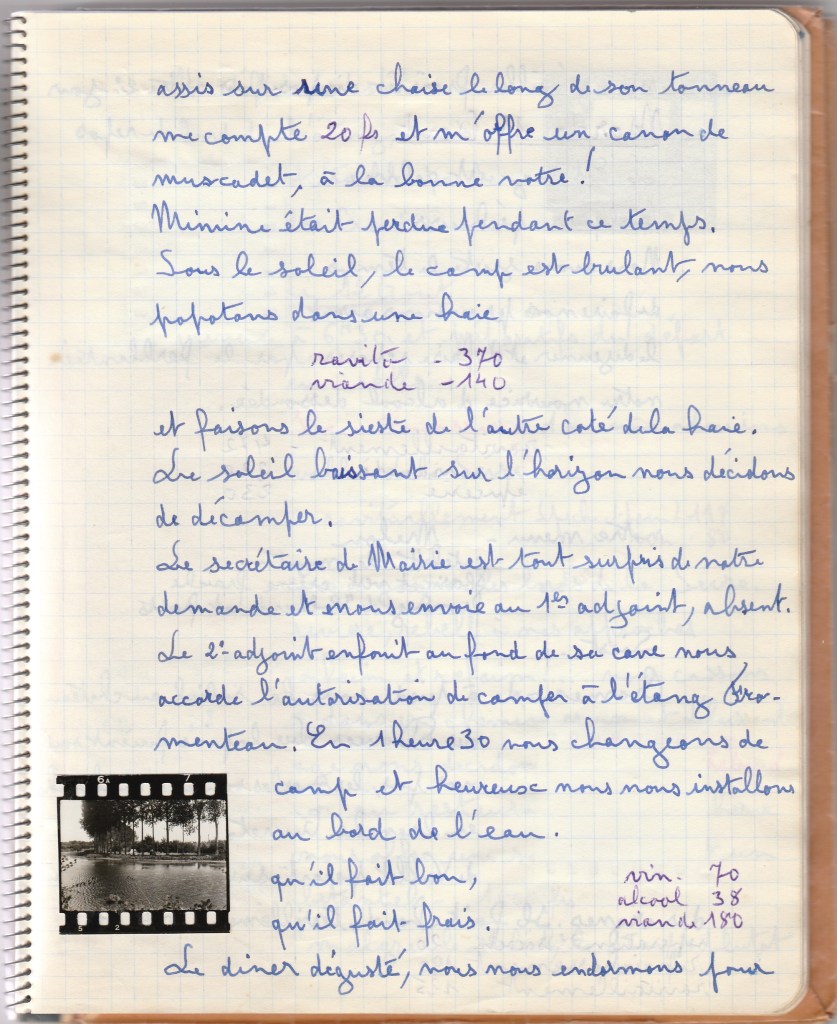 assis sur une chaise le long de son tonneau
me compte 20 fs et m'offre un canon de
muscadet, à la bonne votre!
Mimine était perdue pendant ce temps.
Sous le soleil, le camp est brulant, nous
popotons dans une haie
ravitt - 370
viande - 140
et faisons le sieste de l'autre coté de la haie.
Le soleil baissant sur l'horizon nous décidons
de décamper.
Le secrétaire de Mairie est tout surpris de notre
demande et nous envoie au 1er adjoint, absent.
Le 2e adjoint enfouit au fond de sa cave nous
accorde l'autorisation de camper à l'étang Fro-
menteau. En 1 heure 30 nous changeons de
camp et heureux nous nous installons
au bord de l'eau.
qu'il fait bon,
vin. 70
alcool 38
qu'il fait frais.
viande 180
Le diner dégusté, nous nous endormons pour
6A 7
5 2